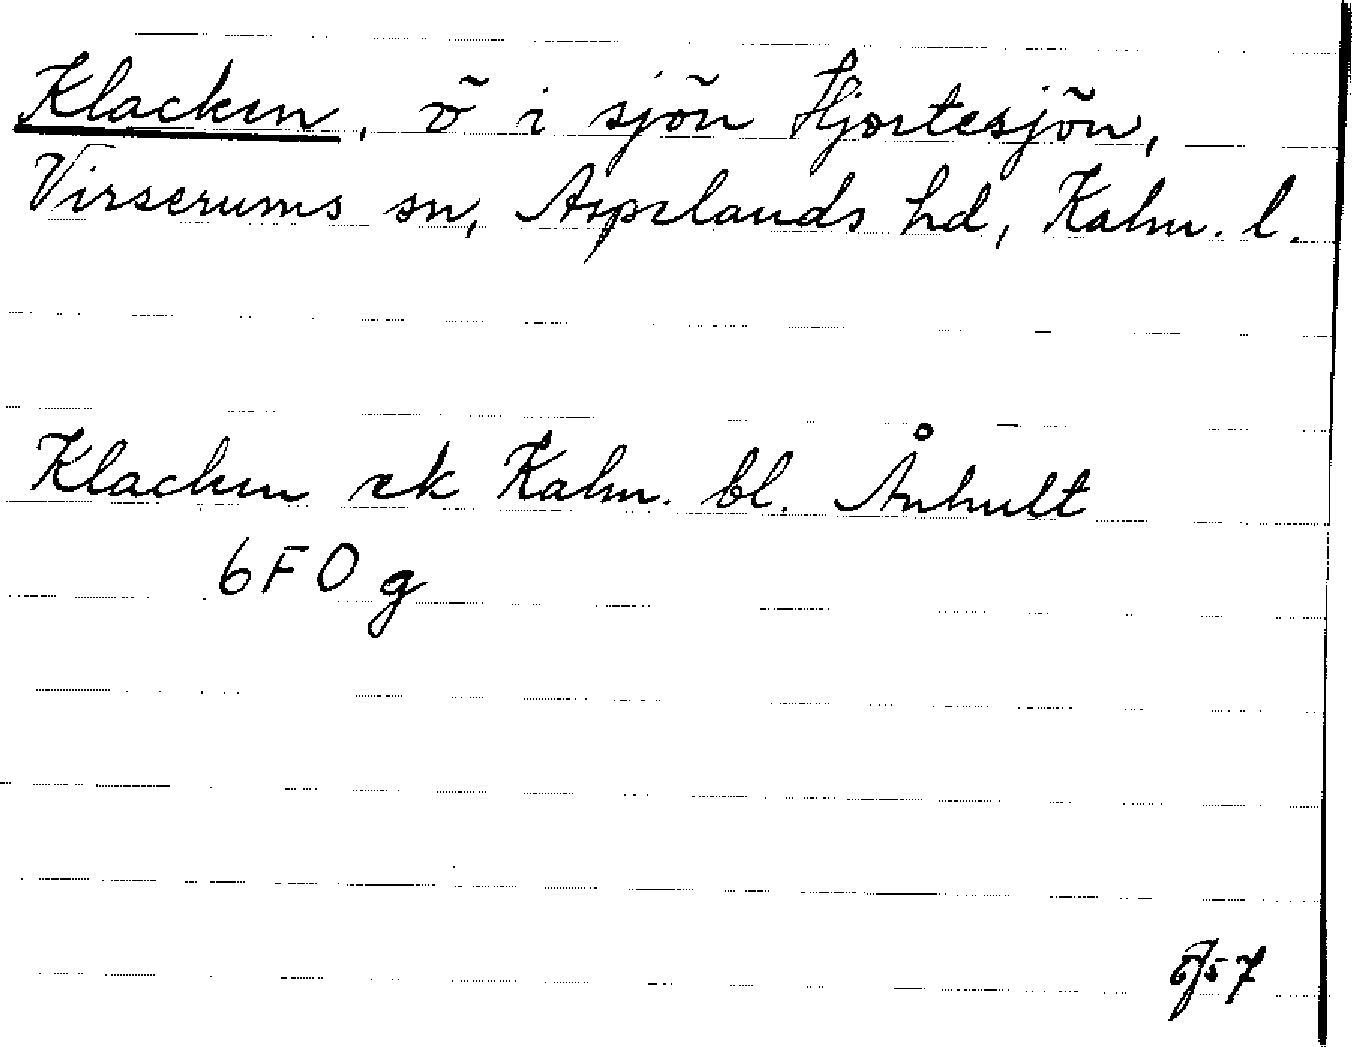 Klacken, ö i sjön Hjortesjön,
Virserums sn, Aspelands hd, Kalm. l.
Klacken ek Kalm. bl. Århult
6F0g